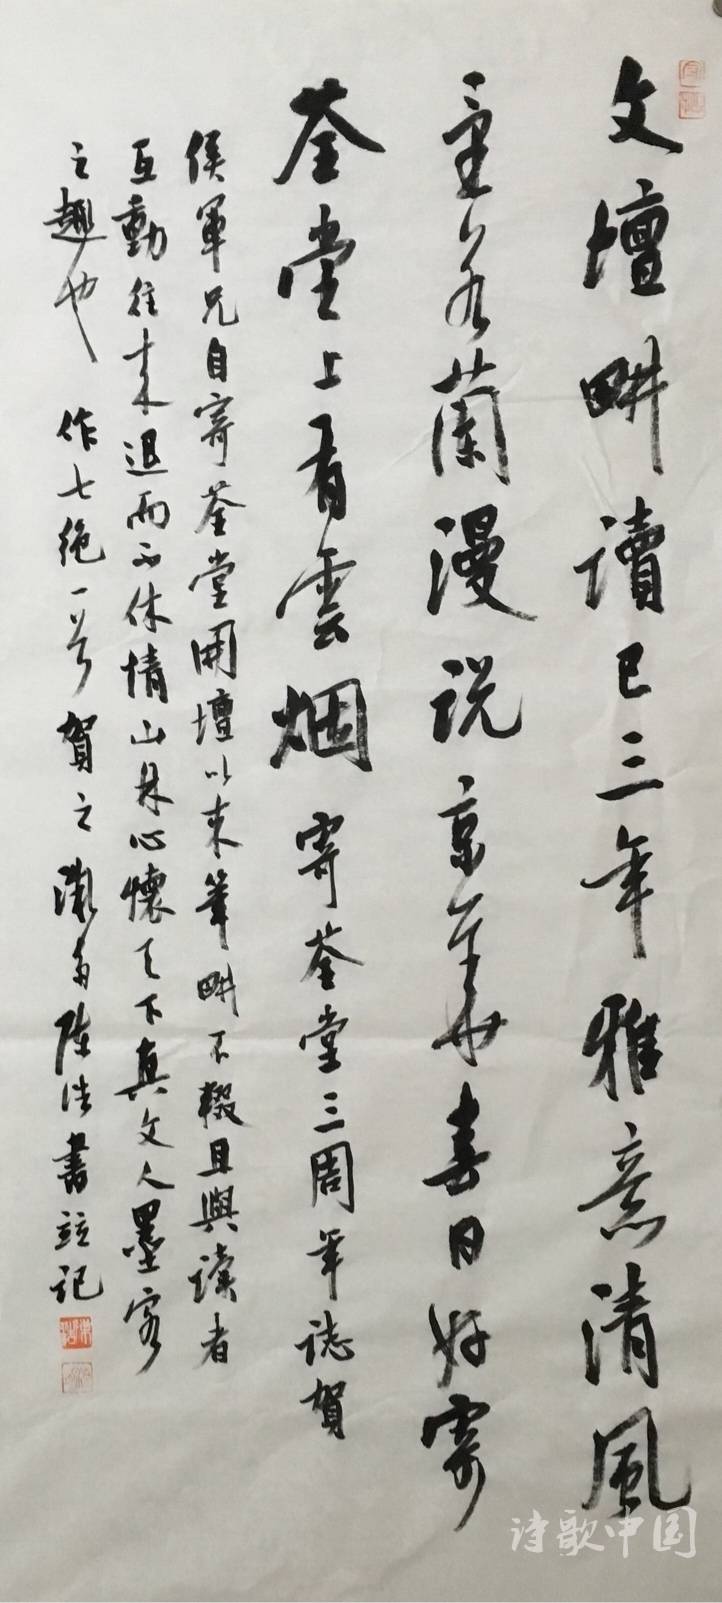 文壇畊讀已三年雅意清風
意若蘭漫説京華春日好寄
荃堂上有雲烟 寄荃堂三周年誌賀
侯軍兄自寄荃堂開壇以來筆畊不輟且與读者
互動往来退而不休情山水心懷天下真文人墨客
之趣也 作七絶一首賀之 陳浩書並記
诗歌中国